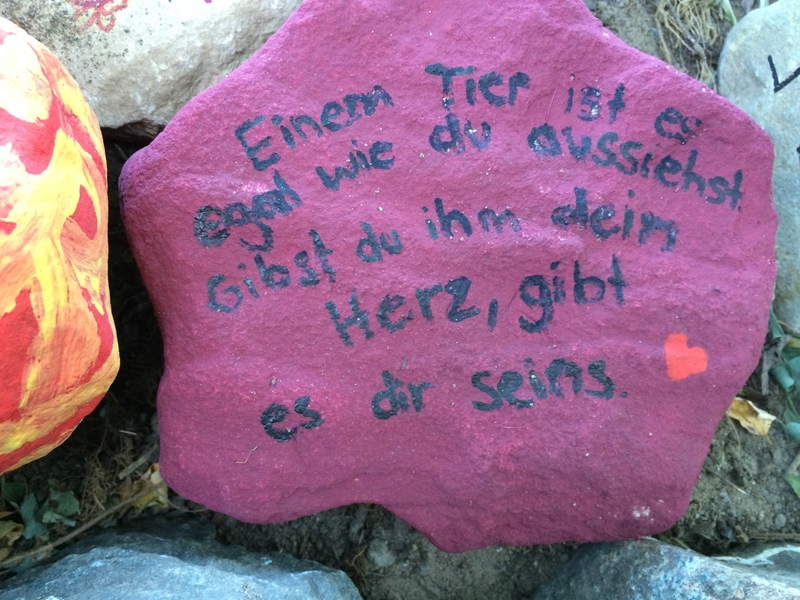 Einem Tier ist es
egal wie du aussiehst
Gibst du ihm dein
Herz, gibt
es dir seins.